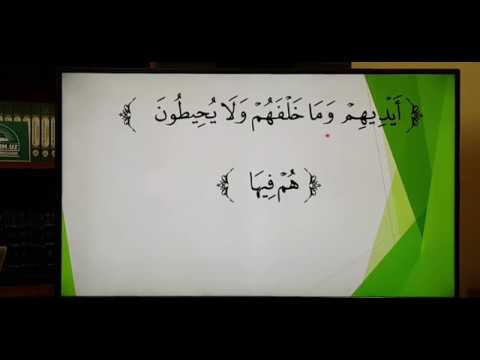 ﴿ أَيْدِيهِمْ وَمَا خَلْفَهُمْ وَلَا يُحِيطُونَ ﴾
﴿ هُمْ فِيهَا ﴾